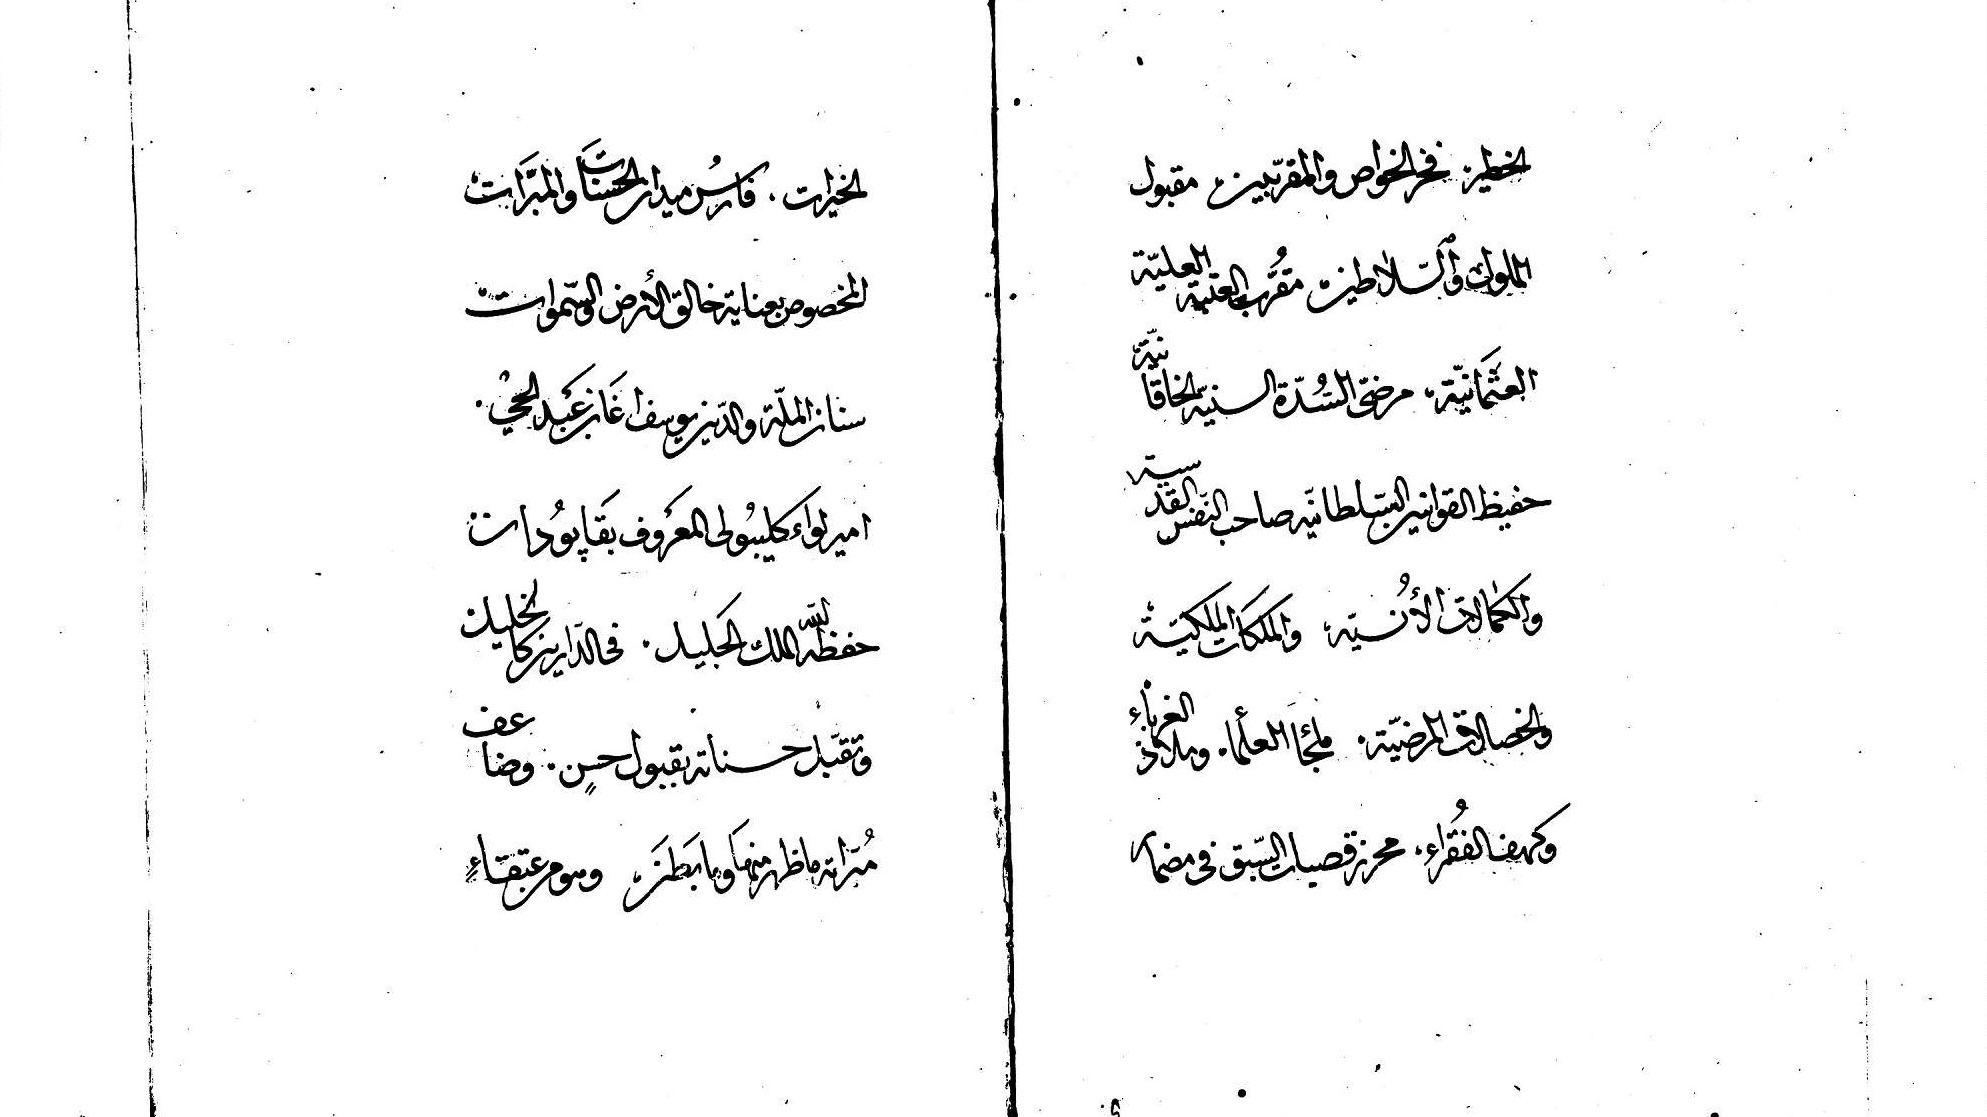 الخطير. فخر الخواص والمقرّبين. مقبول
الملوك والسّلاطين. مقرّب العتبة العليّة
العثمانيّة. مرضىّ السُّدّة السنية الخاقانيّة
حفيظ القوانين السّلطانيّه صاحب النّفس القدسية
والكمالات الأُنسيّه. والملكات الملكيّة
والخصالات المرضيّة. ملجأ العلماء. وملاذ الغرباء
وكهف الفُقراء. محرز قصبات السّبق فى مضمار
الخيرات. فارسُ ميدان الحسنات والمبرّات
المخصوص بعناية خالق الأرض والسّموات
سنان الملّة والدّين يوسف اغا بن عَبد الحىّ.
امير لواء كليبُولى المعروف بقاپودان
حفظه الله الملك الجليل. فى الدّارين كالخليل
وتقبّل حسناته بقبول حسنٍ. وضاعف
مبرّاته ما ظهر منها وما بَطَنَ. وهو من عتقاءِ